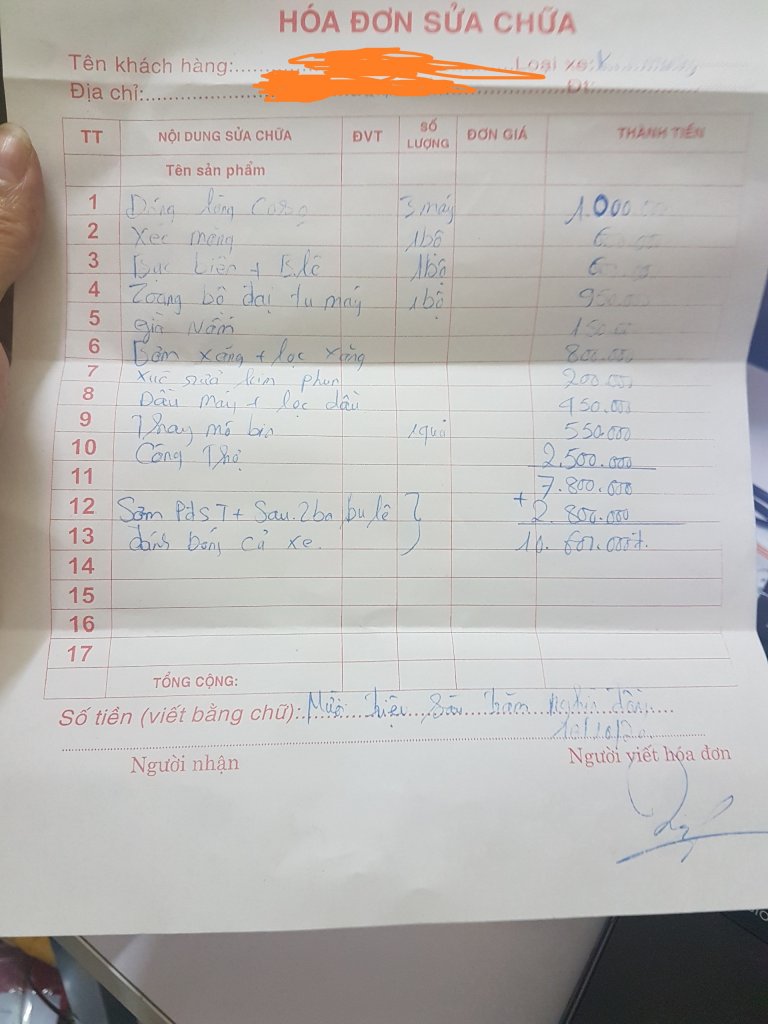 HÓA ĐƠN SỬA CHỮA
Tên khách hàng: Loại xe:
Địa chỉ: ĐT:
TT NỘI DUNG SỬA CHỮA ĐVT SỐ LƯỢNG ĐƠN GIÁ THÀNH TIỀN
Tên sản phẩm
1 Đóng lòng 3 máy 1.000.000
2 Xéc măng 1bộ
3 + 1bộ
4 bộ đại tu máy 1bộ 950.000
5 150.000
6 Bơm xăng + lọc xăng 800.000
7 Xúc rửa kim phun 200.000
8 Dầu máy + lọc dầu 450.000
9 Thay mô bin 1quả 550.000
10 Công Thợ 2.500.000
11 7.800.000
12 Sơn + Sau. + 2.800.000
13 đánh bóng cả xe. 10.600.000
14
15
16
17
TỔNG CỘNG:
Số tiền (viết bằng chữ): Mười triệu sáu trăm nghìn đồng
Người nhận Người viết hóa đơn